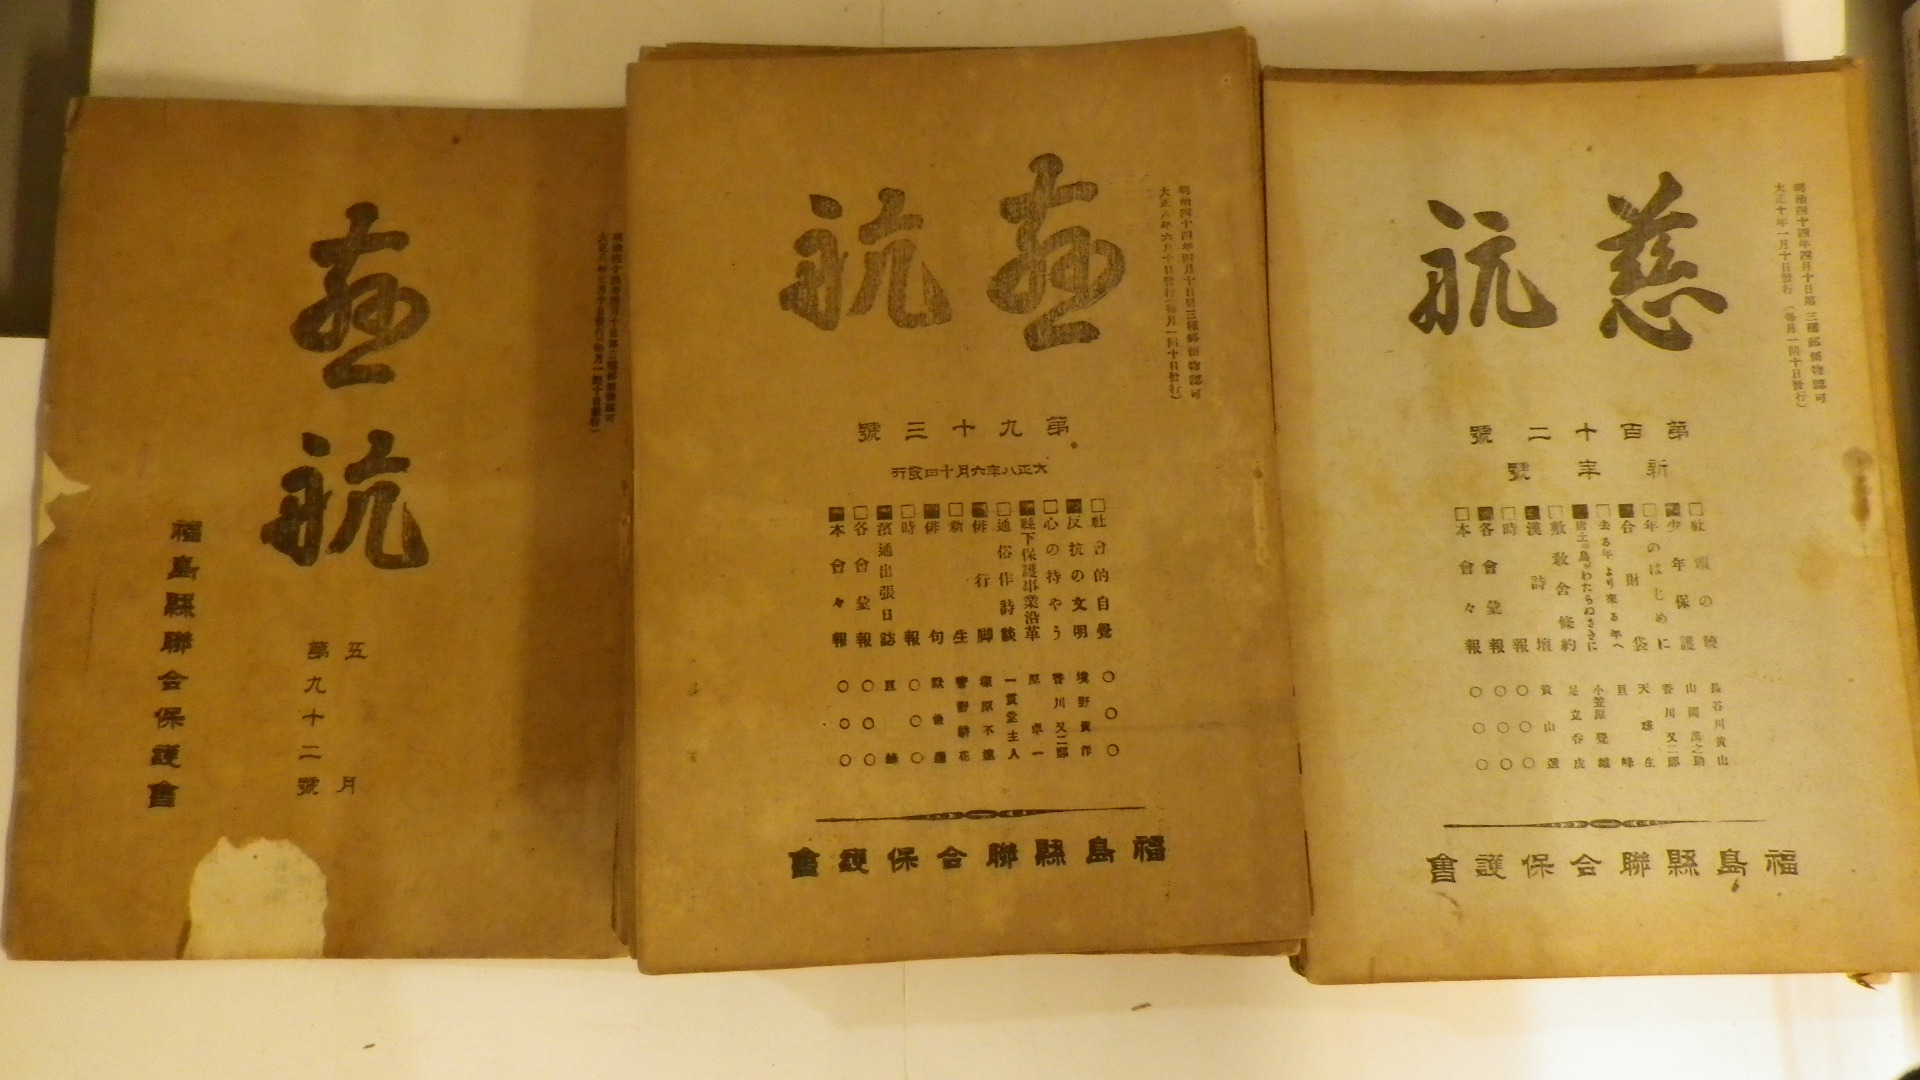 慈航
五月
第九十二號
福島縣聯合保護會
明治四十四年四月十日第三種郵便物認可
慈航
明治四十四年四月十日第三種郵便物認可
大正八年六月十日發行(每月一回十日發行)
第九十三號
大正八年六月十四發行
□社會的自覺 ○○○
反抗の文明 境野黄洋
□心の持やう 香川又二郎
縣下保護事業沿革 原卓一
□通俗作詩談 一貫堂主人
俳行脚
□新生
俳句
□時報 ○○○
濱通出張日誌
□各會彙報 ○○○
本會々報 ○○○
福島縣聯合保護會
慈航
明治四十四年四月十日第三種郵便物認可
大正十年一月十日發行(每月一回十日發行)
第百十二號
新年號
□社頭の曉 長谷川黄山
少年保護 山岡萬之助
□年のはじめに 香川又二郎
合財袋 天球生
□去る年より來る年へ
唐土の鳥がわたらぬさきに 小笠原覺雄
□敷敎舍條約 足立呑虎
漢詩壇 黄山選
□時報 ○○○
各會彙報 ○○○
□本會々報 ○○○
福島縣聯合保護會